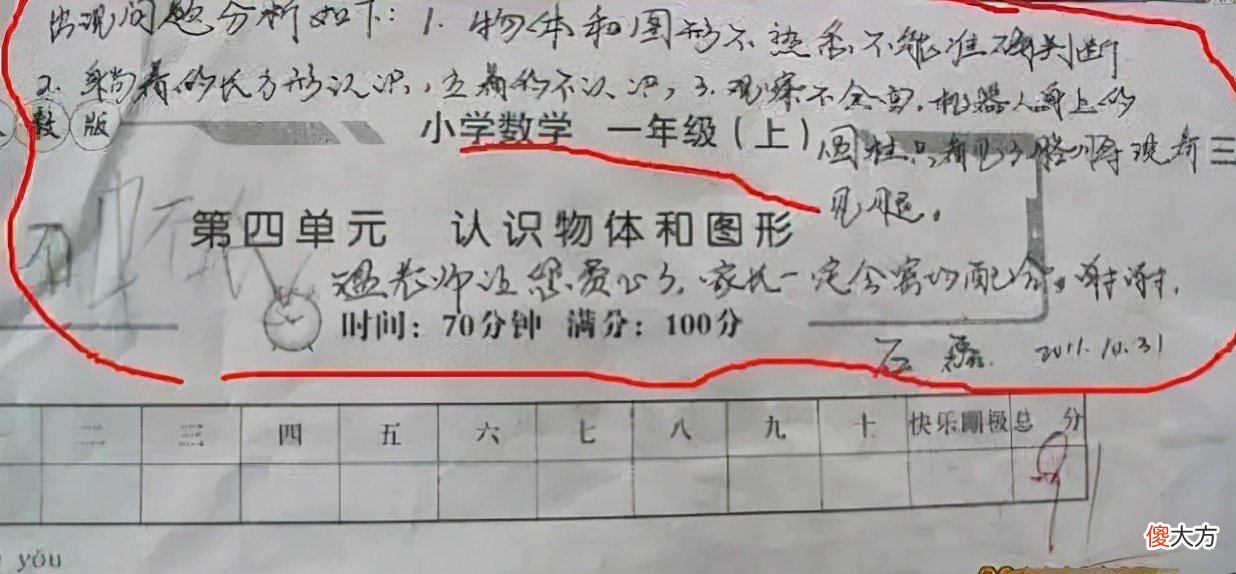 出现问题分析如下：1. 物体和图形不熟悉，不能准确判断
2. 躺着的长方形认识，立着的不认识，3. 观察不全面，机器人身上的
数版
小学数学 一年级（上）
圆柱只看见了胳膊没看
见腿。
三
第四单元 认识物体和图形
老师让您费心了，家长一定会密切配合。谢谢。
时间：70分钟 满分：100分
2011.10.31
二 三 四 五 六 七 八 九 十 快乐 总分
yǒu
傻大方